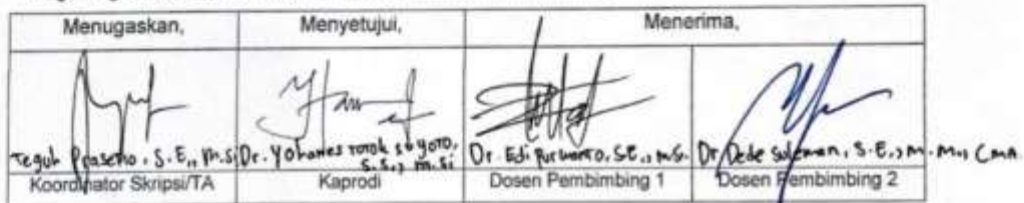 Menugaskan, Menyetujui, Menerima,
Teguh Prasetio, S.E., M.Si Dr. Yohanes totok suyoto, Dr. Edi Purwanto, S.E., M.Si. Dr. Dede Suleman, S.E., M.M., CMA.
S.S., M.Si
Koordinator Skripsi/TA Kaprodi Dosen Pembimbing 1 Dosen Pembimbing 2